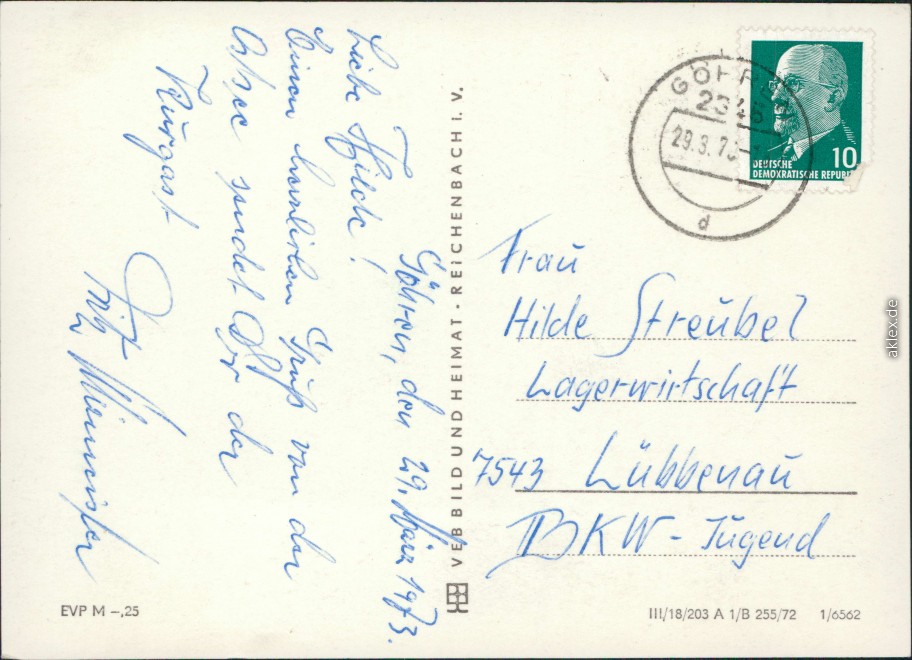 Göhren, den 29. März 1973.
Liebe Hilde!
Einen herrlichen Gruß von der
Ostsee sendet Dir der
Kurgast
Fritz
VEB BILD UND HEIMAT · REICHENBACH I. V.
GÖHREN
2345
29.3.73
d
10
DEUTSCHE
DEMOKRATISCHE REPUBLIK
Frau
Hilde Streubel
Lagerwirtschaft
7543 Lübbenau
BKW - Jugend
EVP M –,25
III/18/203 A 1/B 255/72 1/6562
aklex.de